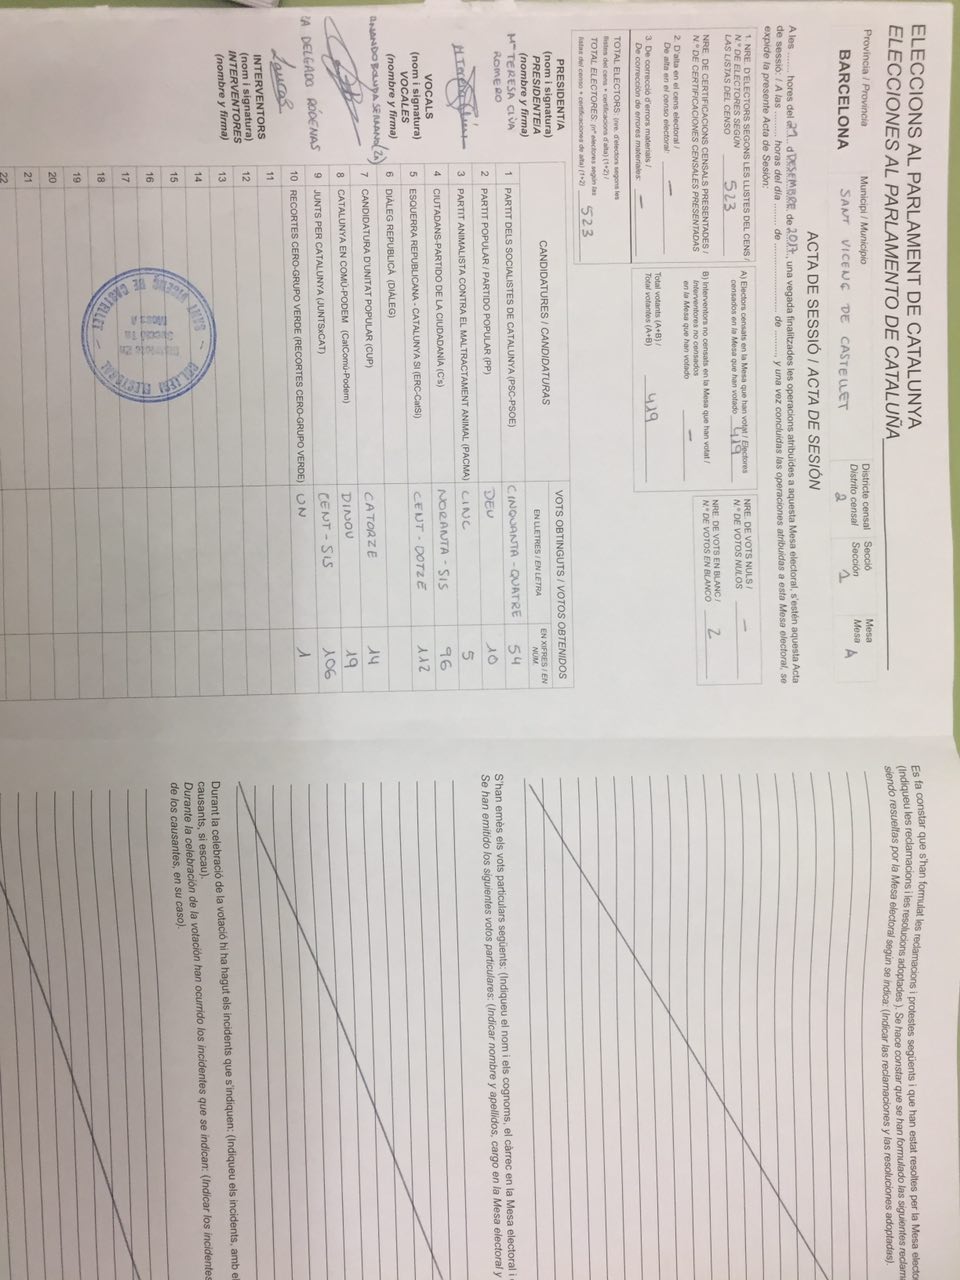 ELECCIONS AL PARLAMENT DE CATALUNYA
ELECCIONES AL PARLAMENTO DE CATALUÑA
Província / Provincia
BARCELONA
Municipi / Municipio
SANT VICENÇ DE CASTELLET
Districte censal
Distrito censal
2
Secció
Sección
1
Mesa
Mesa
A
ACTA DE SESSIÓ / ACTA DE SESIÓN
A les ........ hores del 21 d DESEMBRE de 2017, una vegada finalitzades les operacions atribuïdes a aquesta Mesa electoral, s'estén aquesta Acta
de sessió. / A las ........ horas del día ........ de ........ de ........, y una vez concluidas las operaciones atribuidas a esta Mesa electoral, se
expide la presente Acta de Sesión:
1. NRE. D'ELECTORS SEGONS LES LLISTES DEL CENS /
N.º DE ELECTORES SEGÚN
LAS LISTAS DEL CENSO
523
NRE. DE CERTIFICACIONS CENSALS PRESENTADES /
N.º DE CERTIFICACIONES CENSALES PRESENTADAS
2. D'alta en el cens electoral /
De alta en el censo electoral: —
3. De correcció d'errors materials /
De corrección de errores materiales: —
TOTAL ELECTORS: (nre. d'electors segons les
llistes del cens + certificacions d'alta) (1+2) /
TOTAL ELECTORES: (nº electores según las
listas del censo + certificaciones de alta) (1+2)
523
A) Electors censats en la Mesa que han votat / Electores
censados en la Mesa que han votado
419
B) Interventors no censats en la Mesa que han votat /
Interventores no censados
en la Mesa que han votado
—
Total votants (A+B) /
Total votantes (A+B)
419
NRE. DE VOTS NULS /
N.º DE VOTOS NULOS
—
NRE. DE VOTS EN BLANC /
N.º DE VOTOS EN BLANCO
2
PRESIDENT/A
(nom i signatura)
PRESIDENTE/A
(nombre y firma)
Mª TERESA OLIVA
ROMERO
VOCALS
(nom i signatura)
VOCALES
(nombre y firma)
INTERVENTORS
(nom i signatura)
INTERVENTORES
(nombre y firma)
DELGADO RODENAS
CANDIDATURES / CANDIDATURAS
VOTS OBTINGUTS / VOTOS OBTENIDOS
EN LLETRES / EN LETRA
EN XIFRES / EN NÚM.
1 PARTIT DELS SOCIALISTES DE CATALUNYA (PSC-PSOE) CINQUANTA-QUATRE 54
2 PARTIT POPULAR / PARTIDO POPULAR (PP) DEU 10
3 PARTIT ANIMALISTA CONTRA EL MALTRACTAMENT ANIMAL (PACMA) CINC 5
4 CIUTADANS-PARTIDO DE LA CIUDADANÍA (C's) NORANTA-SIS 96
5 ESQUERRA REPUBLICANA - CATALUNYA SÍ (ERC-CatSí) CENT-DOTZE 112
6 DIÀLEG REPUBLICÀ (DIÀLEG)
7 CANDIDATURA D'UNITAT POPULAR (CUP) CATORZE 14
8 CATALUNYA EN COMÚ-PODEM (CatComú-Podem) DINOU 19
9 JUNTS PER CATALUNYA (JUNTSxCAT) CENT-SIS 106
10 RECORTES CERO-GRUPO VERDE (RECORTES CERO-GRUPO VERDE) UN 1
11
12
13
14
15
16
17
18
19
20
21
22
COL·LEGI ELECTORAL
SANT VICENÇ DE CASTELLET
Mesa A
Es fa constar que s'han formulat les reclamacions i protestes següents i que han estat resoltes per la Mesa
(Indiqueu les reclamacions i les resolucions adoptades). Se hace constar que se han formulado las siguientes
siendo resueltas por la Mesa electoral según se indica: (Indicar las reclamaciones y las resoluciones adoptadas).
S'han emès els vots particulars següents: (Indiqueu el nom i els cognoms, el càrrec en la Mesa electoral i
Se han emitido los siguientes votos particulares: (Indicar nombre y apellidos, cargo en la Mesa electoral y
Durant la celebració de la votació hi ha hagut els incidents que s'indiquen: (Indiqueu els incidents, amb
causants, si escau).
Durante la celebración de la votación han ocurrido los incidentes que se indican: (Indicar los incidentes
de los causantes, en su caso).